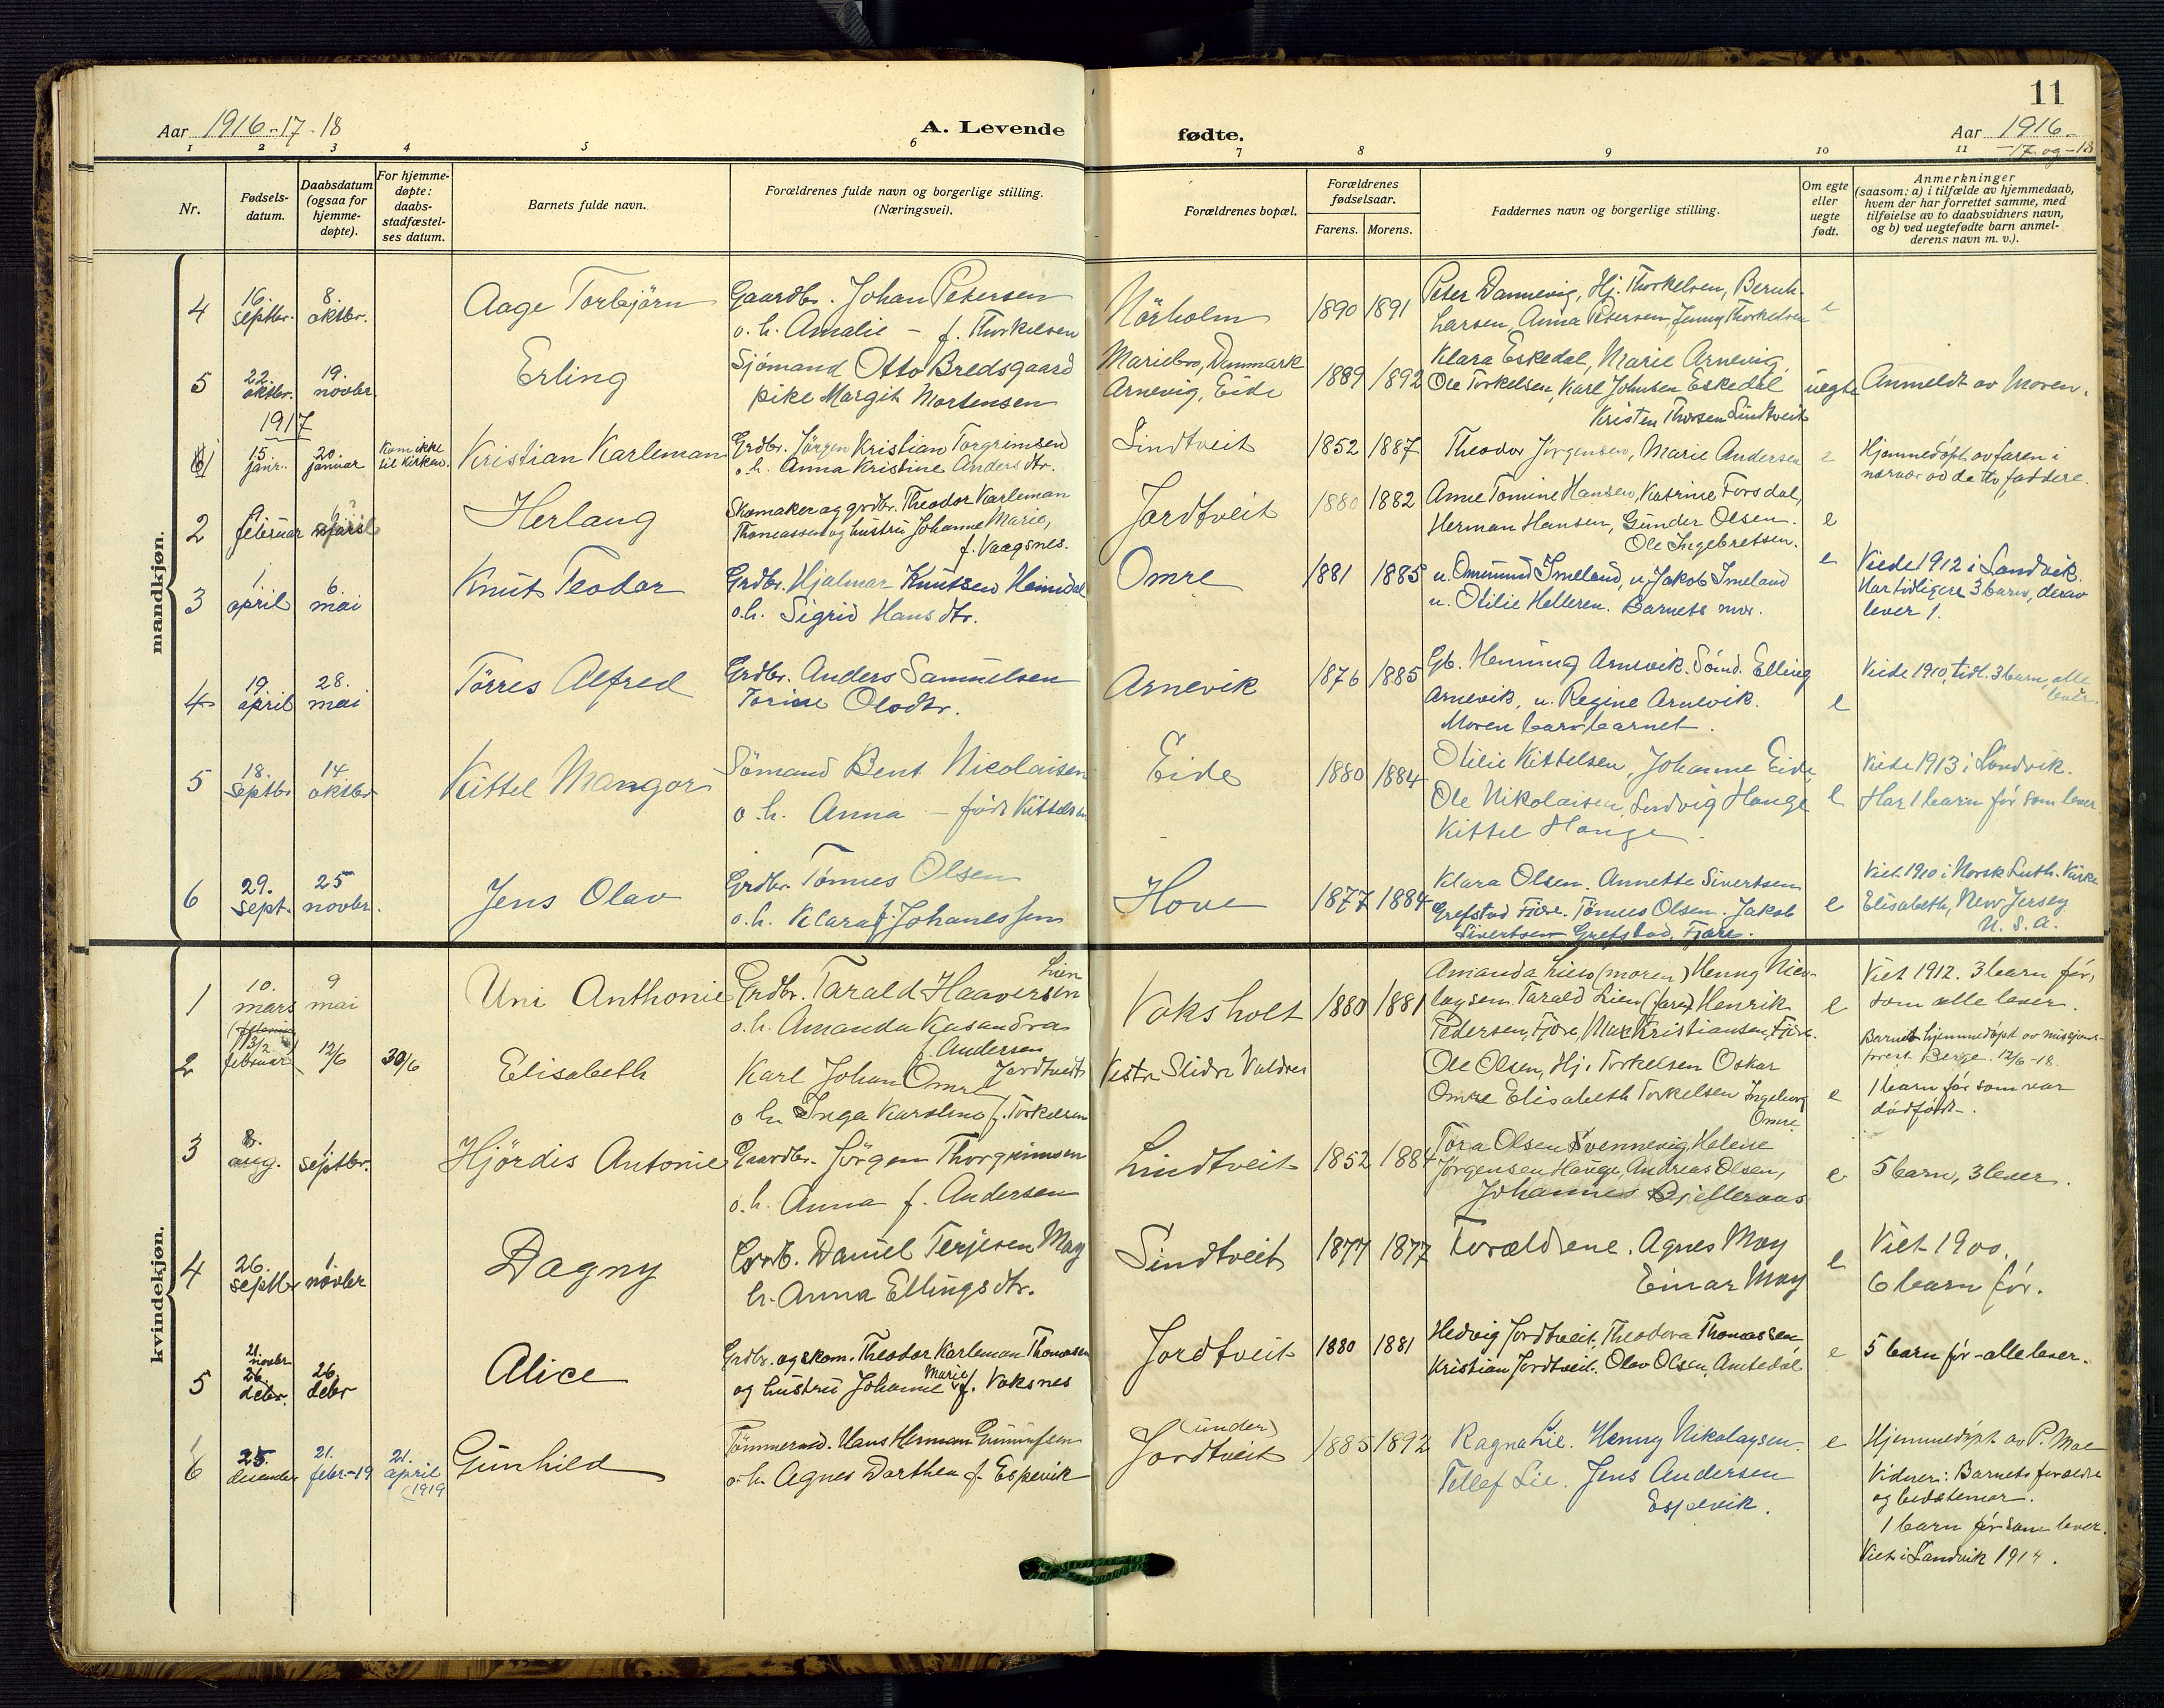 11
Aar 1916-17-18
A. Levende
fødte.
Aar 1916-
-17 og -18
1 2 3 4 5 6 7 8 9 10 11
Nr.
Fødsels-
datum.
Daabsdatum
(ogsaa for
hjemme-
døpte).
For hjemme-
døpte:
daabs-
stadfæstel-
ses datum.
Barnets fulde navn.
Forældrenes fulde navn og borgerlige stilling.
(Næringsvei).
Forældrenes bopæl.
Forældrenes
fødselsaar.
Farens. Morens.
Faddernes navn og borgerlige stilling.
Om egte
eller
uegte
født.
Anmerkninger
(saasom: a) i tilfælde av hjemmedaab,
hvem der har forrettet samme, med
tilføielse av to daabsvidners navn,
og b) ved uegtefødte barn anmel-
derens navn m. v.).
mandkjøn.
4
16.
septbr.
8.
oktbr.
Aage Torbjörn
Gaardbr. Johan Petersen
o. h. Amalie - f. Thorkelsen
Nörholm
1890 1891
Peter Dannevig, Hj. Thorkelsen, Bernh.
Larsen, Anna Petersen, Jenny Thorkelsen
e
5
22.
oktbr.
19.
novbr.
Erling
Sjömand Otto Bredsgaard
pike Margit Mortensen
Mariebo, Danmark
Arnevig, Eide
1889 1892
Klara Eskedal, Marie Arnevig,
Ole Torkelsen, Karl Johnsen Eskedal
Kristen Thorsen Lindtveit
uegte
Anmeldt av Moren.
1917
1
15.
janr.
20.
januar
Kom ikke
til kirken.
Kristian Karleman
Grdbr. Jørgen Kristian Torgrimsen
o. h. Anna Kristine Andersdtr.
Lindtveit
1852 1887
Theodor Jörgensen, Marie Andersen
e
Hjemmedöpt av faren i
nærvær av de to faddere.
2
februar
april
Herlaug
Skomaker og grdbr. Theodor Karleman
Thomassen og hustru Johanne Marie,
f. Vaagsnes.
Jordtveit
1880 1882
Anne Tomine Hansen, Katrine Forsdal,
Herman Hansen, Gunder Olsen.
Ole Ingebretsen.
e
3
1.
april
6.
mai
Knut Teodor
Grdbr. Hjalmar Knutsen Heimdal
o.h. Sigrid Hansdtr.
Omre
1881 1885
u. Omund Imeland, u. Jakob Imeland
u. Otilie Helleren. Barnets mor.
e
Viede 1912 i Landvik.
Har tidligere 3 barn, derav
lever 1.
4
19.
april
28.
mai
Törres Alfred
Grdbr. Anders Samuelsen
Torine Olsdtr.
Arnevik
1876 1885
Gb. Henning Arnevik. Sömd. Elling
Arnevik, u. Regine Arnevik.
Moren bar barnet.
e
Viede 1910, tidl. 3 barn, alle
lever.
5
18.
septbr
14.
oktbr
Kittel Mangor
Sömand Bent Nicolaisen
o. h. Anna - föds Kittelsen
Eide
1880 1884
Otilie Kittelsen, Johanne Eide,
Ole Nikolaisen, Ludvig Hauge
Kittel Hauge.
e
Viede 1913 i Landvik.
Har 1 barn för som lever
6
29.
sept.
25
novbr.
Jens Olav
Grdbr. Tönnes Olsen
o. h. Klara f. Johanessen
Hove
1877 1884
Klara Olsen. Annette Sivertsen
Grefstad Fjære. Tönnes Olsen. Jakob
Sivertsen Grefstad. Fjære.
e
Viet 1910 i Norsk Luth. Kirke
Elisabeth, New Jersey
U. S. A.
kvindekjøn.
1
10.
mars
9
mai
Uni Anthonie
Lien
Grdbr. Tarald Haaversen
o. h. Amanda Kasandra
f. Andersen
Voksholt
1880 1881
Amanda Lien (moren) Henny Nico-
laysen. Tarald Lien (faren) Henrik
Pedersen, Fjære, Max Kristiansen, Fjære.
e
Viet 1912. 3 barn för,
som alle lever.
2
13/2
februar
12/6
30/6
Elisabeth
Karl Johan Omre Jordtveit
o h Inga Karoline f. Torkelsen
Vestre Slidre Valdres
Ole Olsen, Hj. Torkelsen Oskar
Omre Elisabeth Torkelsen Ingeborg
Omre
e
Barnet hjemmedöpt av missjons-
prest Berge. 12/6-18.
1 barn för som var
dödfödt.
3
8.
aug.
1
septbr.
Hjördis Antonie
Gaardbr. Jörgen Thorgrimsen
o. h. Anna f. Andersen
Lindtveit
1852 1887
Tora Olsen Svennevig, Helene
Jörgensen Hauge, Andreas Olsen,
Johannes Bjelleraas
e
5 barn, 3 lever.
4
26.
septbr
1.
novbr
Dagny
Grdb. Daniel Terjesen May
h. Anna Ellingsdtr.
Lindtveit
1877 1877
Forældrene. Agnes May
Einar May
e
Viet 1900.
6 barn för.
5
21.
novbr
26.
debr.
26.
debr
Alice
Grdbr. og skom. Theodor Karleman Thomassen
og hustru Johanne Marie f. Vaksnes
Jordtveit
1880 1881
Hedvig Jordtveit, Theodora Thomassen,
Kristian Jordtveit. Olav Olsen, Amtedal
e
5 barn för - alle lever.
6
25.
desember
21.
febr.-19
21.
april
1919
Gunhild
Tömmermd. Hans Herman Gunnufsen
o. h. Agnes Dorthea f. Espevik
(under)
Jordtveit
1885 1892
Ragna Lie. Henny Nikolaysen.
Tellef Lie. Jens Andersen
Espevik.
e
Hjemmedöpt av P. Moe
Vidner: Barnets foreldre
og bedstemor.
1 barn för som lever.
Viet i Landvik 1914.